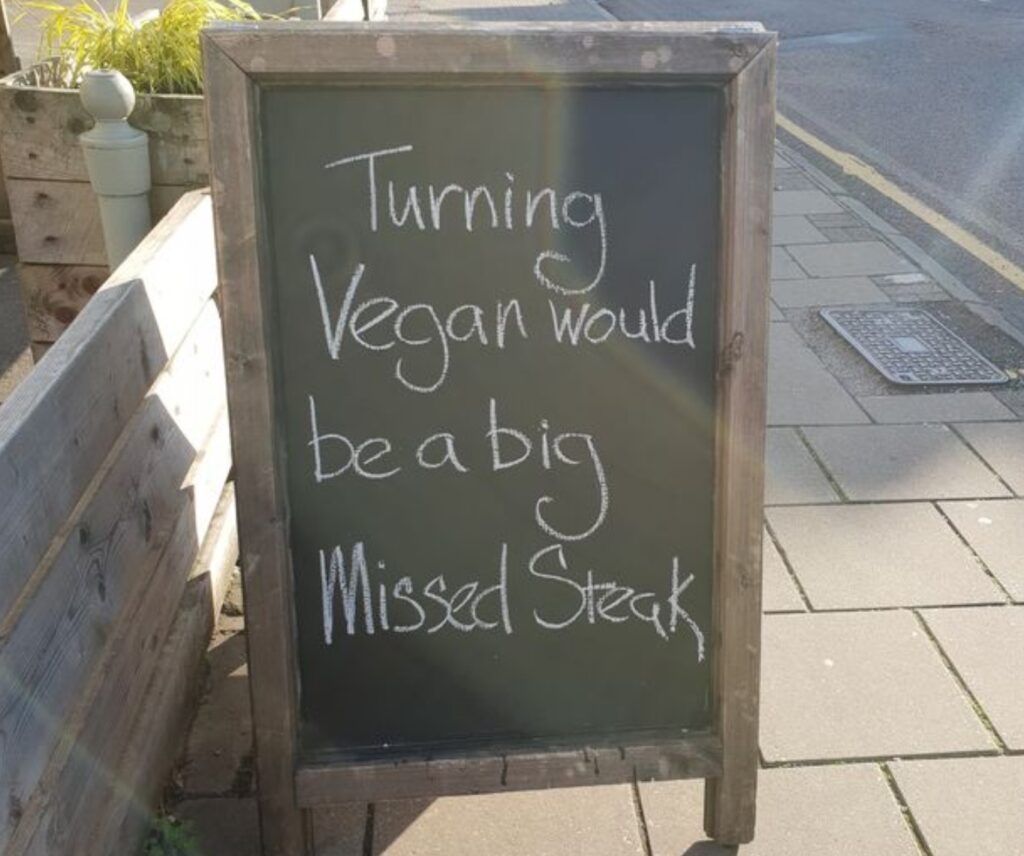 Turning
Vegan would
be a big
Missed Steak